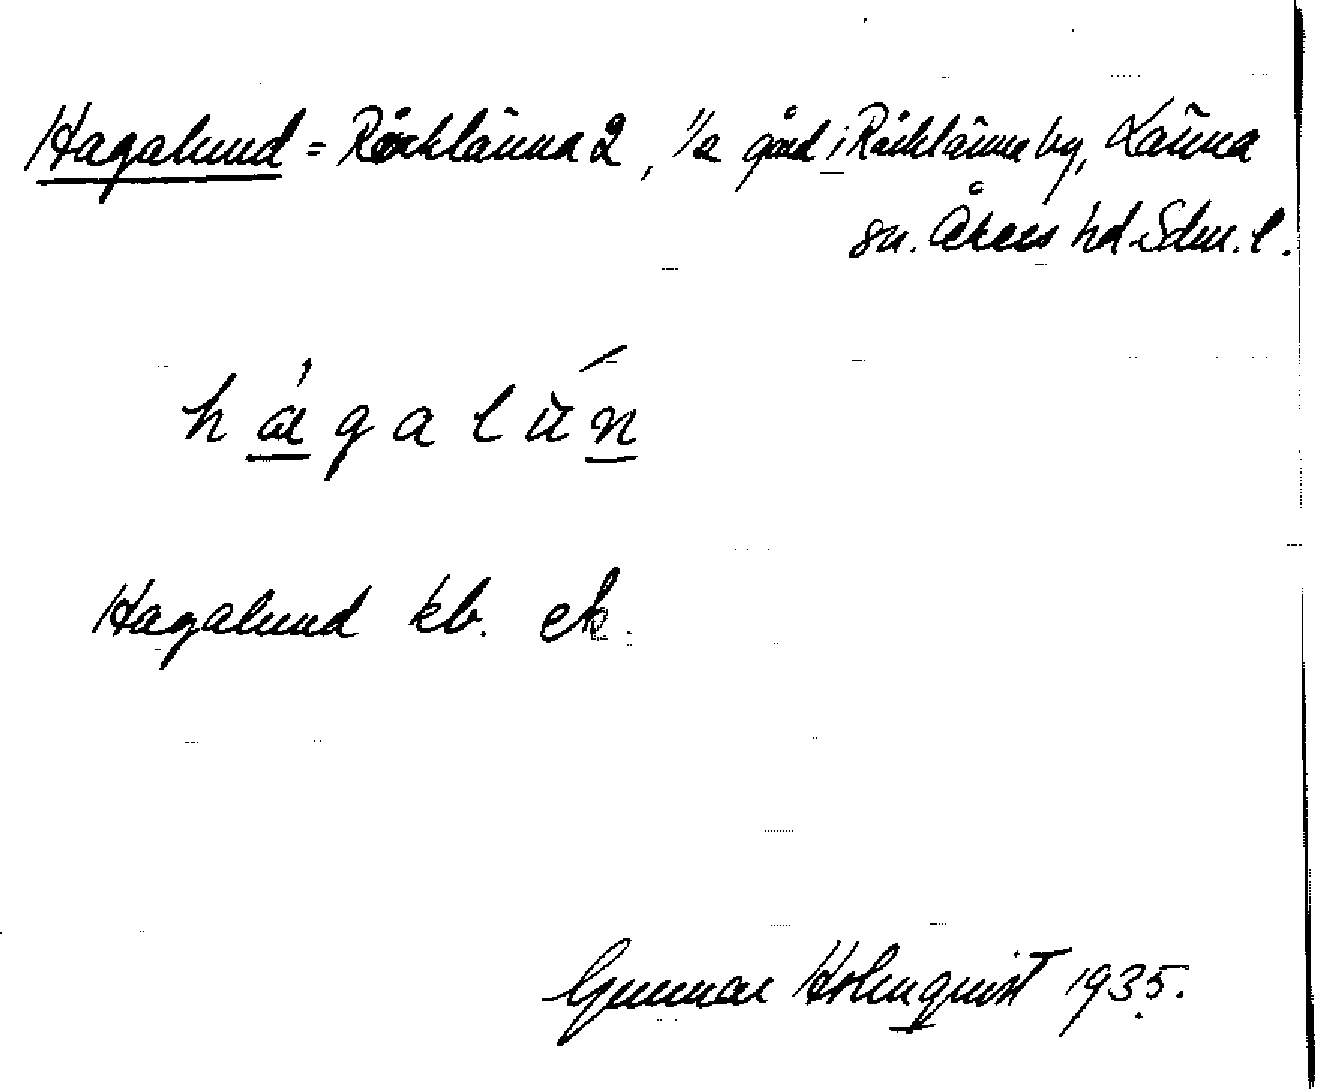 Hagalund = Räcklänna 2, 1/2 gård i Räcklänna by, Länna
sn. Åkers hd Sdm. l.
há̱galùṉ
Hagalund kb. ek.
Gunnar Holmquist 1935.